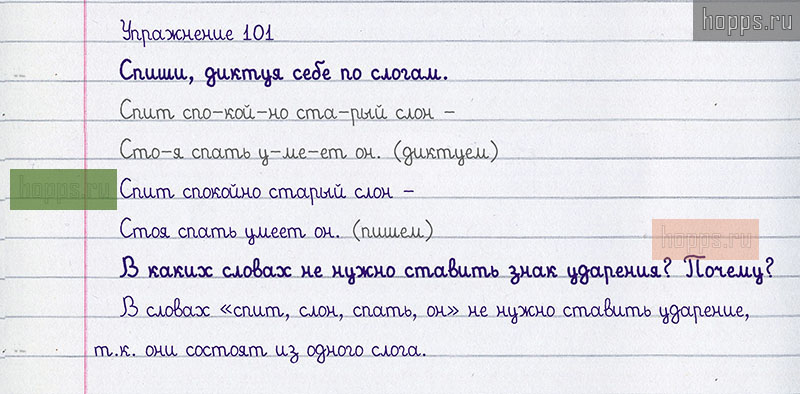 hopps.ru
Упражнение 101
Спиши, диктуя себе по слогам.
Спит спо-кой-но ста-рый слон -
Сто-я спать у-ме-ет он. (диктуем)
hopps.ru
Спит спокойно старый слон -
Стоя спать умеет он. (пишем)
hopps.ru
В каких словах не нужно ставить знак ударения? Почему?
В словах «спит, слон, спать, он» не нужно ставить ударение,
т.к. они состоят из одного слога.